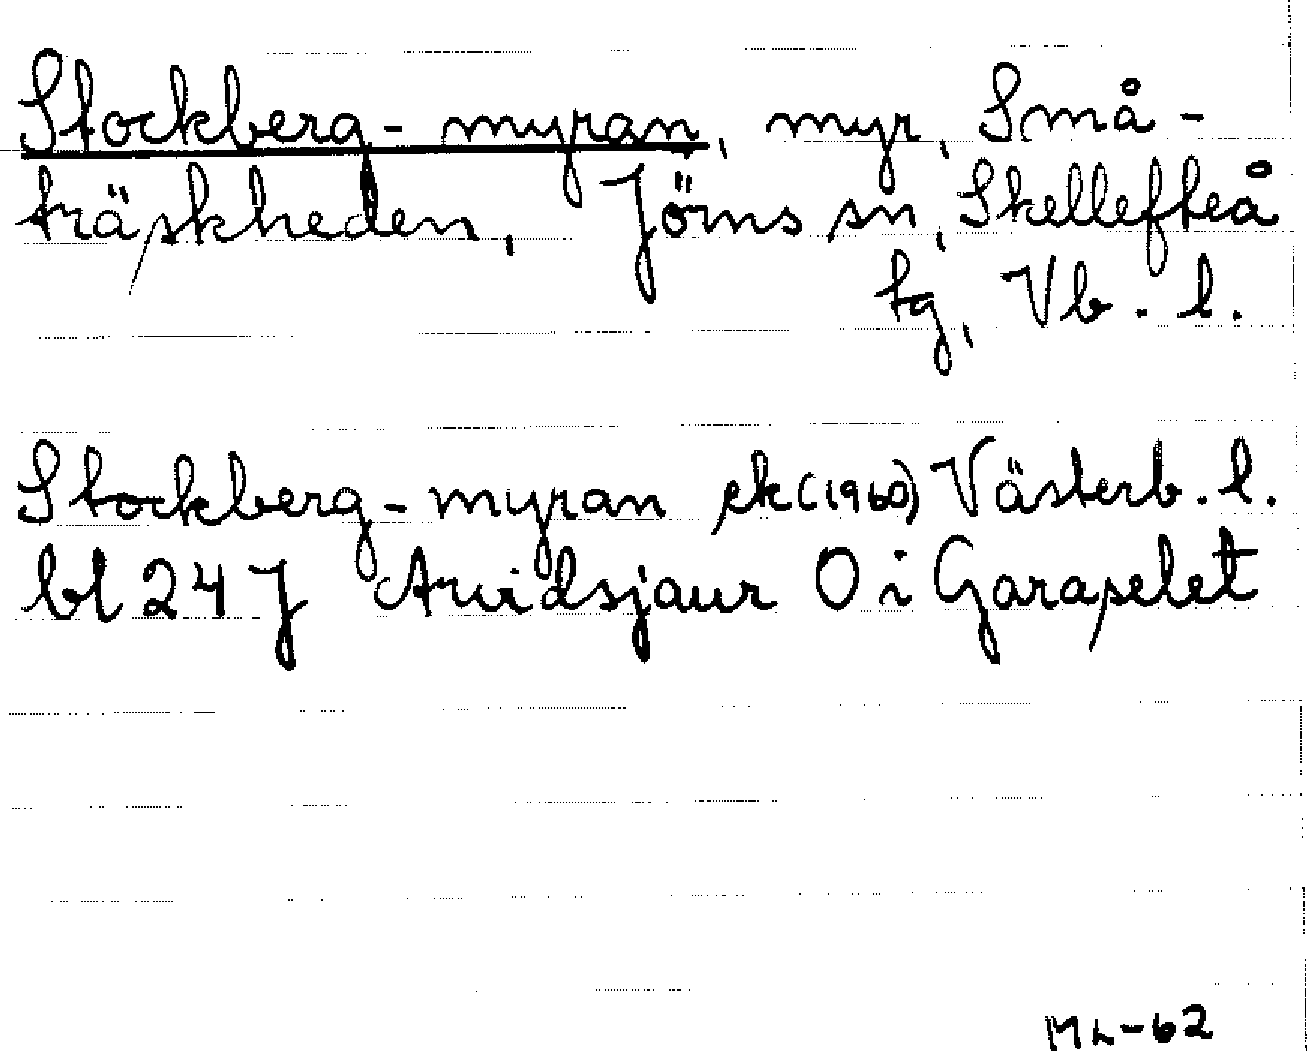 Stockberg-myran, myr, Små-
träskheden, Jörns sn, Skellefteå
tg, Vb. l.
Stockberg-myran ek (1960) Västerb. l.
bl 24 J Arvidsjaur O i Garaselet
ML-62